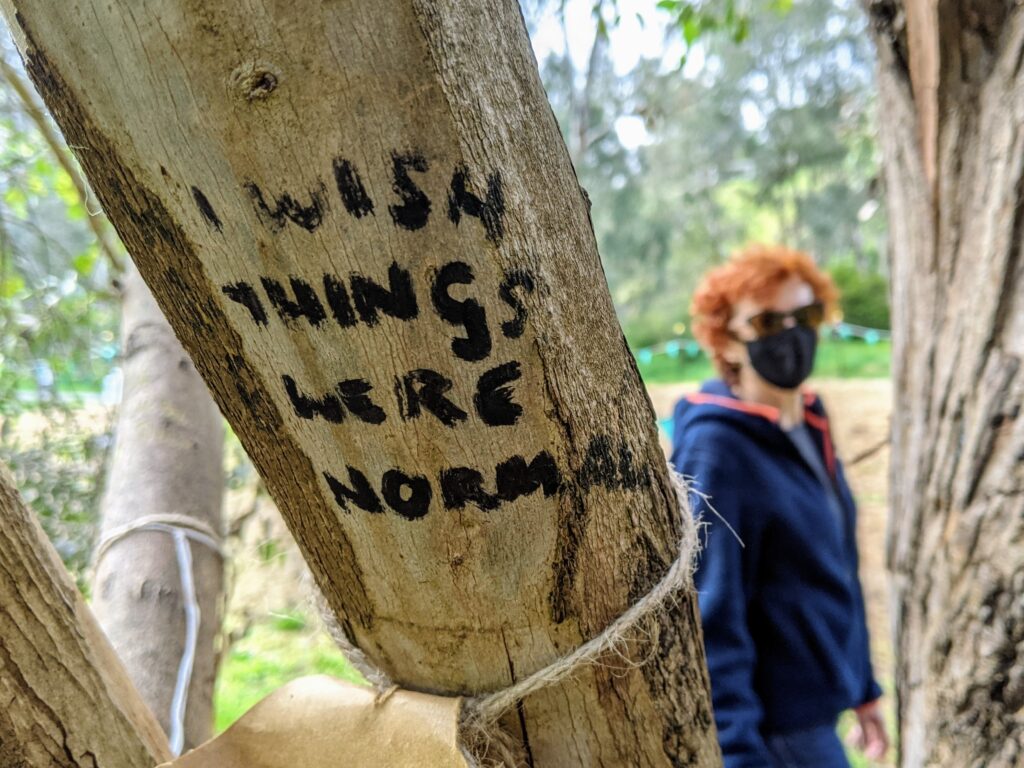 I WISH
THINGS
WERE
NORMAL